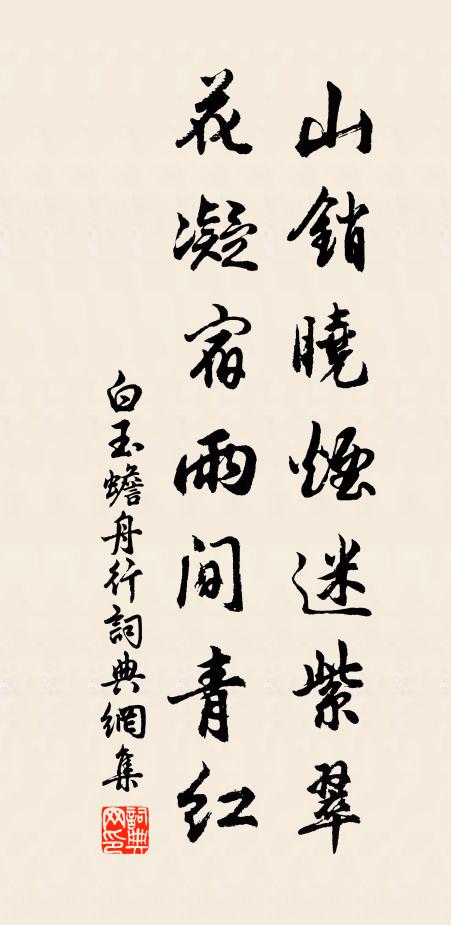 山銷曉煙迷紫翠
花凝宿雨間青紅
白玉蟾舟行詞典網集
詞典網印